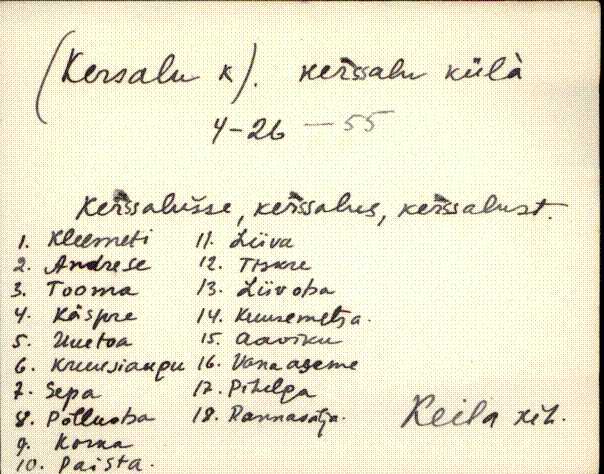 (Kersalu k). kerssalu külà
4-26 — 55
kerssalusse, kerssalus, kerssalust.
1. Kleemeti 11. Liiva
2. Andrese 12. Tiskre
3. Tooma 13. Liivoha
4. Käspre 14. Kuusemetsa.
5. Uuetoa 15. Aaviku
6. Kruusiaugu 16. Vanaaseme
7. Sepa 17. Pihelga
8. Põlluoha 18. Rannasalja.
9. Korna
10. Paista.
Keila kih.